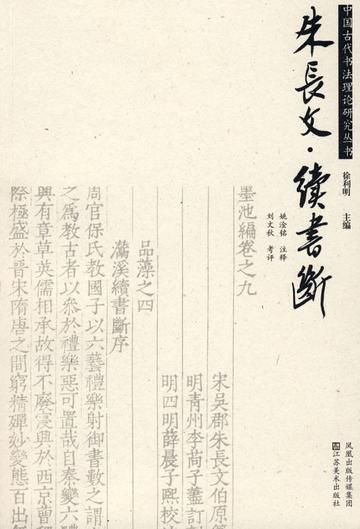 中国古代书法理论研究丛书
朱長文·續書斷
徐利明 主编
姚淦铭 注释
刘文秋 考评
墨池編卷之九
宋吳郡朱長文伯原
明青州李荀子藎訂
明四明薛晨子熙校
品藻之四
㵎溪續書斷序
周官保氏教國子以六藝禮樂射御書數之謂
之為教古者以叅於禮樂惡可置哉自秦變六
興有章草英儒相承故得不廢寖興於西京曹
際極盛於晉宋隋唐之間窮精殫妙變態百出
凤凰出版传媒集团
江苏美术出版社